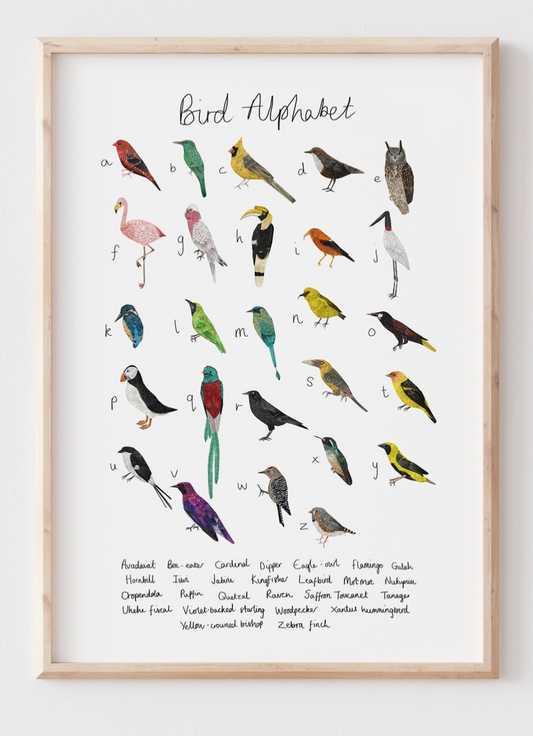 Bird Alphabet
a b c d e
f g h i j
k l m n o
p q r s t
u v w x y
z
Avadavat Bee-eater Cardinal Dipper Eagle-owl Flamingo Galah
Hornbill Iiwi Jabiru Kingfisher Leafbird Motmot Nukupuu
Oropendola Puffin Quetzal Raven Saffron Toucanet Tanager
Uhehe fiscal Violet-backed starling Woodpecker Xantus hummingbird
Yellow-crowned bishop Zebra finch